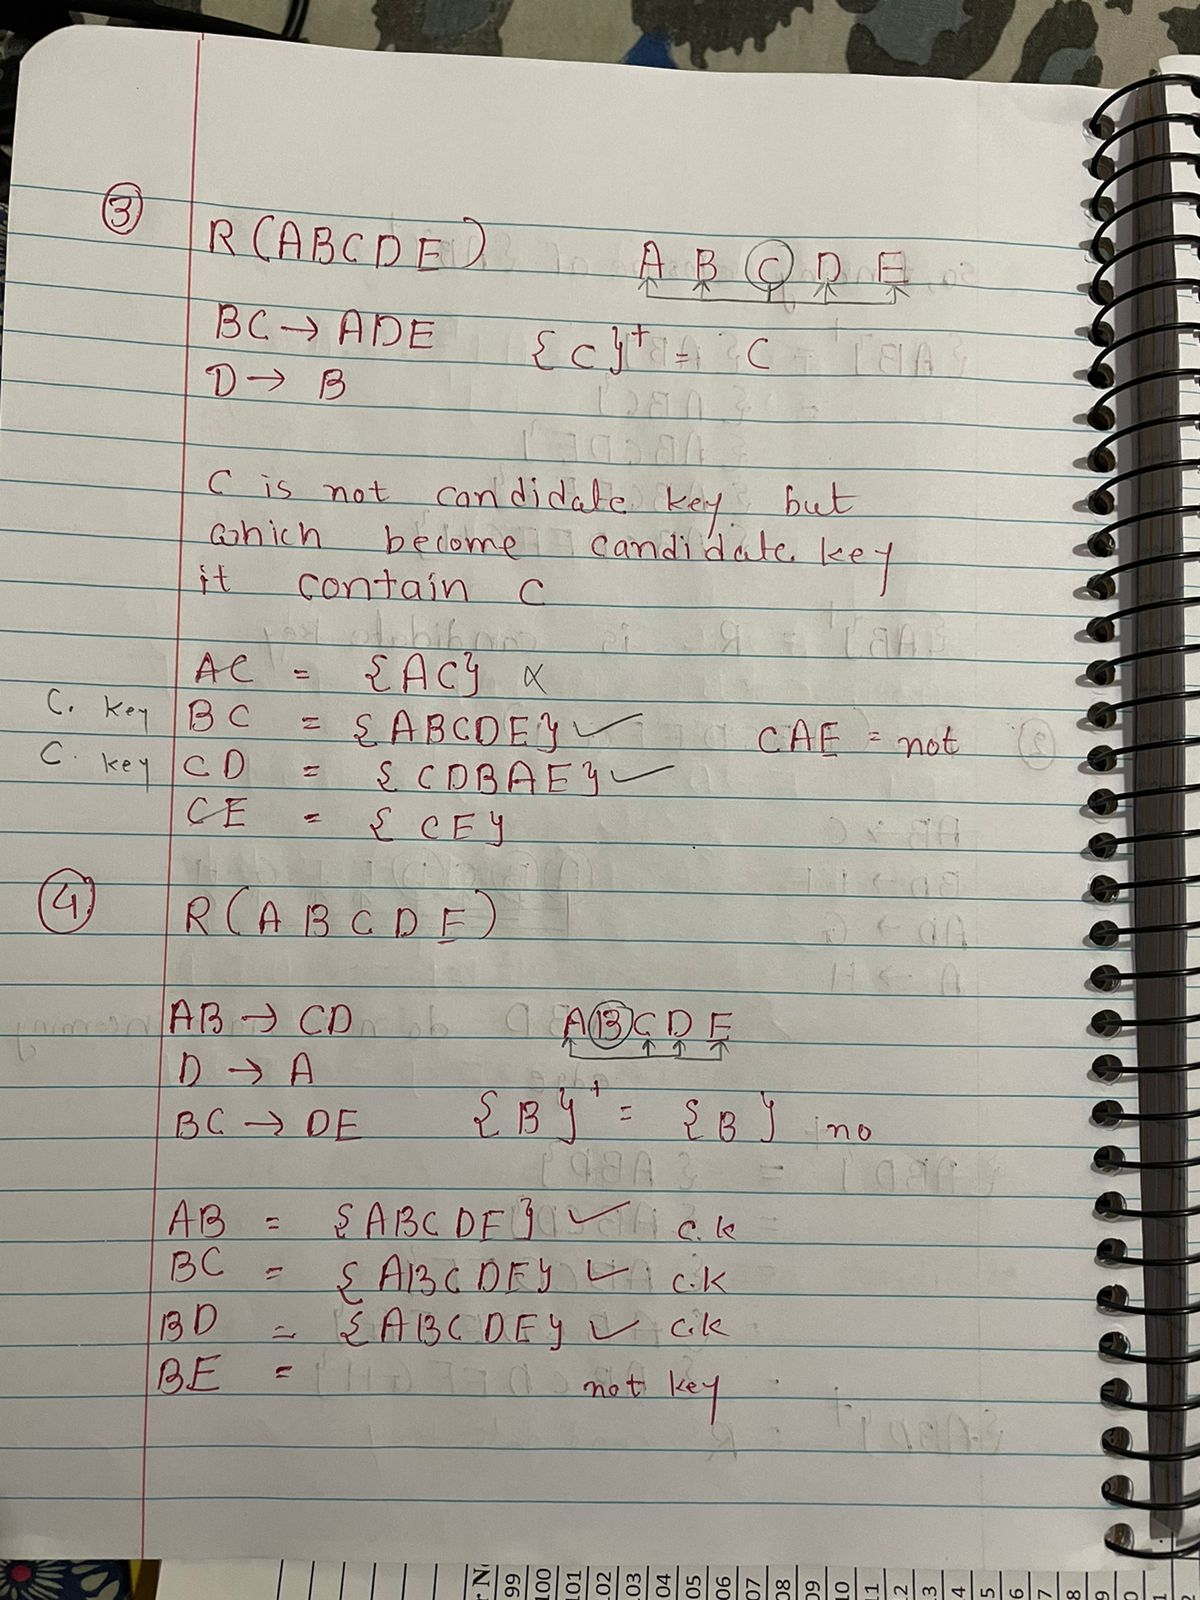 3
R(ABCDE)
A B C D E
BC → ADE
{C}⁺ = C
D → B
C is not candidate key but
which become candidate key
it contain C
AC = {AC} ×
C. key BC = {ABCDE} ✓
CAE = not
C. key CD = {CDBAE} ✓
CE = {CE}
4
R(ABCDE)
AB → CD
A B C D E
D → A
BC → DE
{B}⁺ = {B} no
AB = {ABCDE} ✓ c.k
BC = {ABCDE} ✓ c.k
BD = {ABCDE} ✓ c.k
BE = not key
r N
99
100
101
102
103
04
05
06
07
08
09
10
11
12
13
4
5
6
7
8
9
0
1